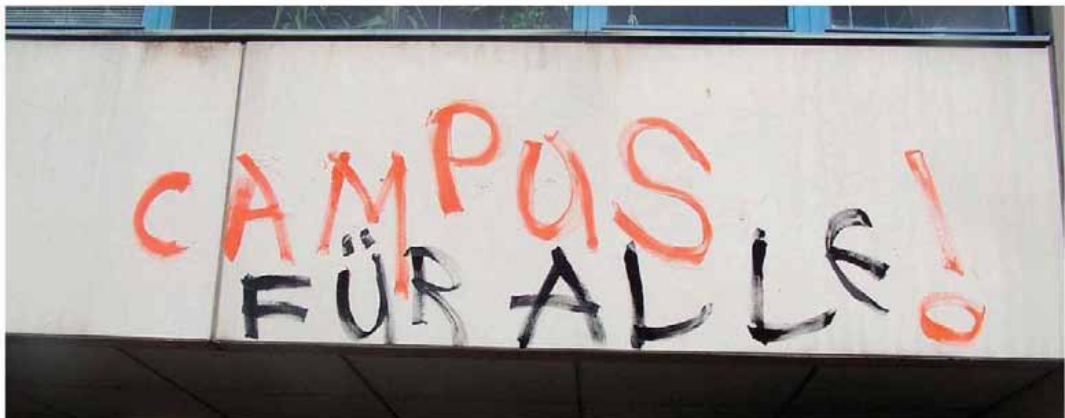 CAMPUS
FÜR ALLE!